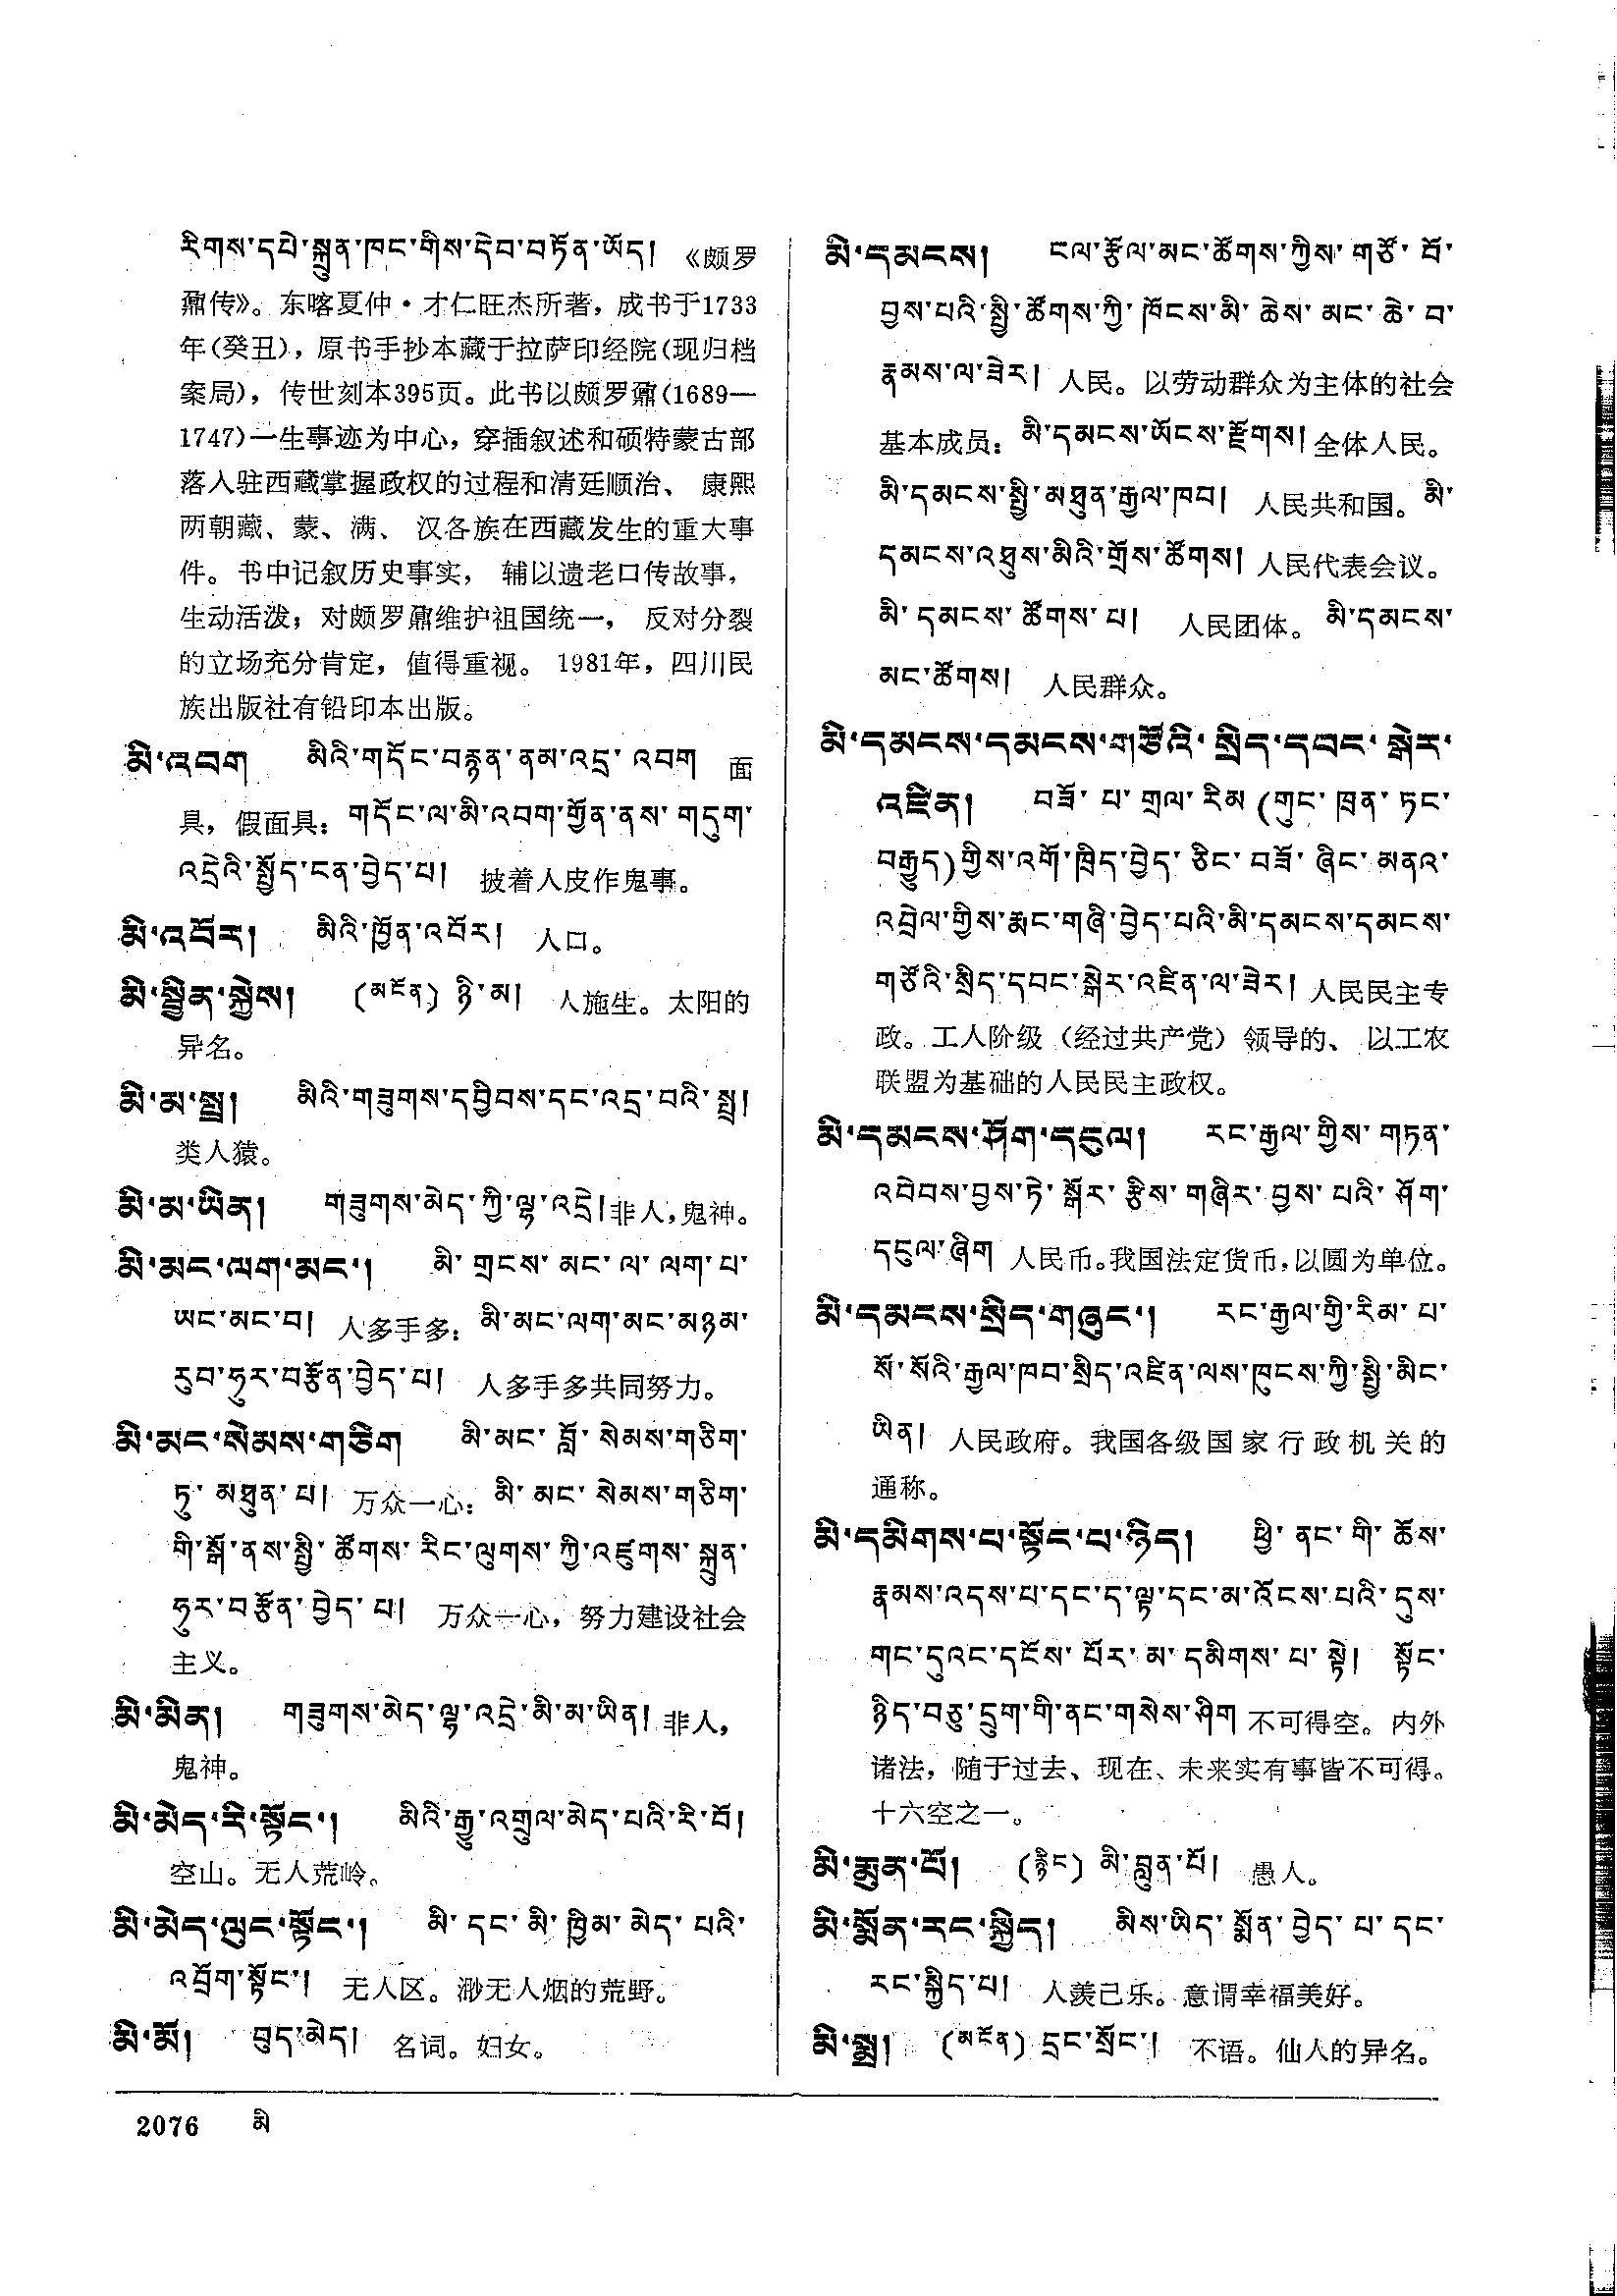 རིགས་དཔེ་སྐྲུན་ཁང་གིས་དེབ་བཏོན་ཡོད། 《颇罗
鼐传》。东喀夏仲·才仁旺杰所著，成书于1733
年(癸丑)，原书手抄本藏于拉萨印经院(现归档
案局)，传世刻本395页。此书以颇罗鼐(1689—
1747)一生事迹为中心，穿插叙述和硕特蒙古部
落入驻西藏掌握政权的过程和清廷顺治、康熙
两朝藏、蒙、满、汉各族在西藏发生的重大事
件。书中记叙历史事实，辅以遗老口传故事，
生动活泼；对颇罗鼐维护祖国统一，反对分裂
的立场充分肯定，值得重视。1981年，四川民
族出版社有铅印本出版。
མི་འབག མིའི་གདོང་བརྙན་ནམ་འདྲ་འབག 面
具，假面具：གདོང་ལ་མི་འབག་གྱོན་ནས་གདུག་
འདྲེའི་སྤྱོད་ངན་བྱེད་པ། 披着人皮作鬼事。
མི་འབོར། མིའི་ཁྱོན་འབོར། 人口。
མི་སྦྱིན་སྐྱེས། (མངོན) ཉི་མ། 人施生。太阳的
异名。
མི་མ་སྤྲ། མིའི་གཟུགས་དབྱིབས་དང་འདྲ་བའི་སྤྲ།
类人猿。
མི་མ་ཡིན། གཟུགས་མེད་ཀྱི་ལྷ་འདྲེ། 非人，鬼神。
མི་མང་ལག་མང་། མི་གྲངས་མང་ལ་ལག་པ་
ཡང་མང་བ། 人多手多：མི་མང་ལག་མང་མཉམ་
རུབ་ཧུར་བརྩོན་བྱེད་པ། 人多手多共同努力。
མི་མང་སེམས་གཅིག མི་མང་བློ་སེམས་གཅིག་
ཏུ་མཐུན་པ། 万众一心：མི་མང་སེམས་གཅིག་
གི་སྒོ་ནས་སྤྱི་ཚོགས་རིང་ལུགས་ཀྱི་འཛུགས་སྐྲུན་
ཧུར་བརྩོན་བྱེད་པ། 万众一心，努力建设社会
主义。
མི་མིན། གཟུགས་མེད་ལྷ་འདྲེ་མི་མ་ཡིན། 非人，
鬼神。
མི་མེད་རི་སྟོང་། མིའི་རྒྱུ་འགྲུལ་མེད་པའི་རི་བོ།
空山。无人荒岭。
མི་མེད་ལུང་སྟོང་། མི་དང་མི་ཁྱིམ་མེད་པའི་
འབྲོག་སྟོང་། 无人区。渺无人烟的荒野。
མི་མོ། བུད་མེད། 名词。妇女。
མི་དམངས། ངལ་རྩོལ་མང་ཚོགས་ཀྱིས་གཙོ་བོ་
བྱས་པའི་སྤྱི་ཚོགས་ཀྱི་ཁོངས་མི་ཆེས་མང་ཆེ་བ་
རྣམས་ལ་ཟེར། 人民。以劳动群众为主体的社会
基本成员：མི་དམངས་ཡོངས་རྫོགས། 全体人民。
མི་དམངས་སྤྱི་མཐུན་རྒྱལ་ཁབ། 人民共和国。མི་
དམངས་འཐུས་མིའི་གྲོས་ཚོགས། 人民代表会议。
མི་དམངས་ཚོགས་པ། 人民团体。མི་དམངས་
མང་ཚོགས། 人民群众。
མི་དམངས་དམངས་གཙོའི་སྲིད་དབང་སྒེར་
འཛིན། བཟོ་པ་གྲལ་རིམ (གུང་ཁྲན་ཏང་
བརྒྱུད) གྱིས་འགོ་ཁྲིད་བྱེད་ཅིང་བཟོ་ཞིང་མནའ་
འབྲེལ་གྱིས་རྨང་གཞི་བྱེད་པའི་མི་དམངས་དམངས་
གཙོའི་སྲིད་དབང་སྒེར་འཛིན་ལ་ཟེར། 人民民主专
政。工人阶级（经过共产党）领导的、以工农
联盟为基础的人民民主政权。
མི་དམངས་ཤོག་དངུལ། རང་རྒྱལ་གྱིས་གཏན་
འབེབས་བྱས་ཏེ་སྒོར་རྩིས་གཞིར་བྱས་པའི་ཤོག་
དངུལ་ཞིག 人民币。我国法定货币，以圆为单位。
མི་དམངས་སྲིད་གཞུང་། རང་རྒྱལ་གྱི་རིམ་པ་
སོ་སོའི་རྒྱལ་ཁབ་སྲིད་འཛིན་ལས་ཁུངས་ཀྱི་སྤྱི་མིང་
ཡིན། 人民政府。我国各级国家行政机关的
通称。
མི་དམིགས་པ་སྟོང་པ་ཉིད། ཕྱི་ནང་གི་ཆོས་
རྣམས་འདས་པ་དང་ད་ལྟ་དང་མ་འོངས་པའི་དུས་
གང་དུའང་དངོས་པོར་མ་དམིགས་པ་སྟེ། སྟོང་
ཉིད་བཅུ་དྲུག་གི་ནང་གསེས་ཤིག 不可得空。内外
诸法，随于过去、现在、未来实有事皆不可得。
十六空之一。
མི་རྨུན་པོ། (རྙིང) མི་བླུན་པོ། 愚人。
མི་སྨོན་རང་སྐྱིད། མིས་ཡིད་སྨོན་བྱེད་པ་དང་
རང་སྐྱིད་པ། 人羡己乐。意谓幸福美好。
མི་སྨྲ། (མངོན) དྲང་སྲོང་། 不语。仙人的异名。
2076 མི